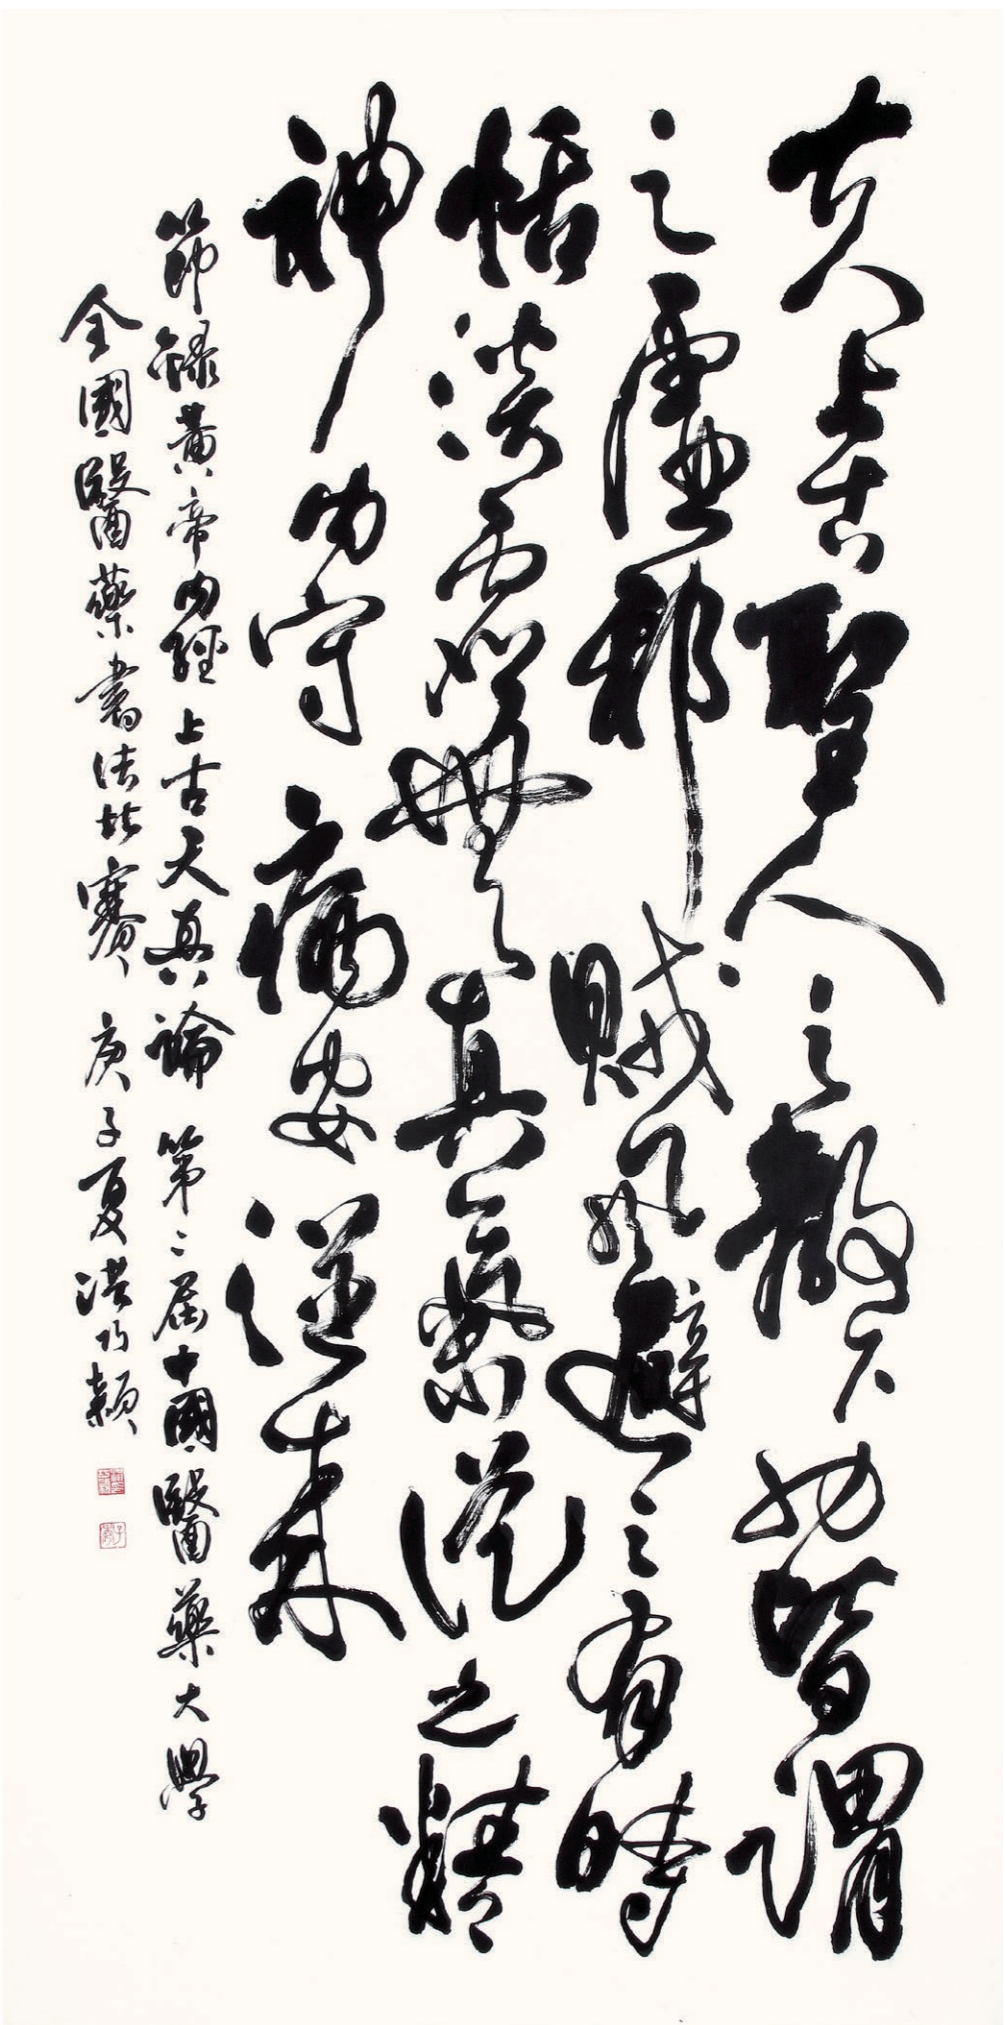 夫上古聖人之教下也皆謂
之虛邪賊風避之有時
恬淡虛無真氣從之精
神內守病安從來
節錄黃帝內經上古天真論 第二屆中國醫藥大學
全國醫藥書法比賽 庚子夏洪巧穎